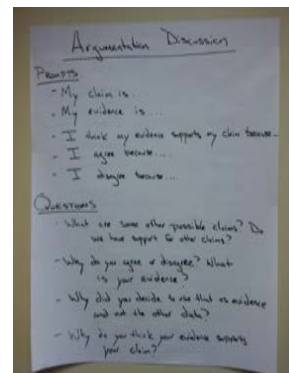 Argumentation Discussion
PROMPTS
- My claim is...
- My evidence is...
- I think my evidence supports my claim because...
- I agree because...
- I disagree because...
QUESTIONS
- What are some other possible claims? Do
we have support for other claims?
- Why do you agree or disagree? What
is your evidence?
- Why did you decide to use that as evidence
and not the other data?
- Why do you think your evidence supports
your claim?